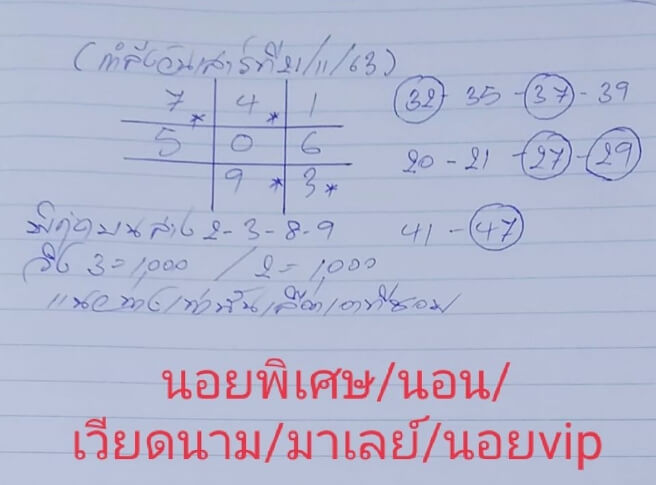 (กำลังวันเสาร์ที่21/11/63)
7* 4* 1
5 0 6
9* 3*
32 - 35 - 37 - 39
20 - 21 - 27 - 29
41 - 47
บนล่าง 2-3-8-9
วิ่ง 3=1,000 / 2=1,000
แนวทางเท่านั้น
นอยพิเศษ/นอน/
เวียดนาม/มาเลย์/นอยvip